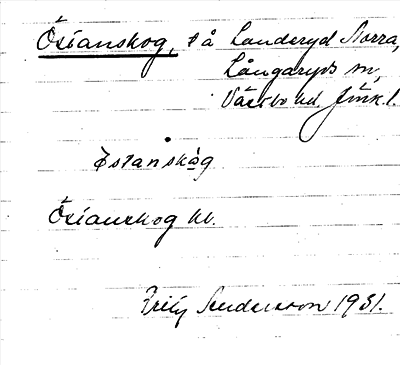 Östanskog, på Landeryd Norra,
Långaryds sn,
Västbo hd. Jönk. l.
Østanskòg
Östanskog hd.
Fritz Andersson 1931.